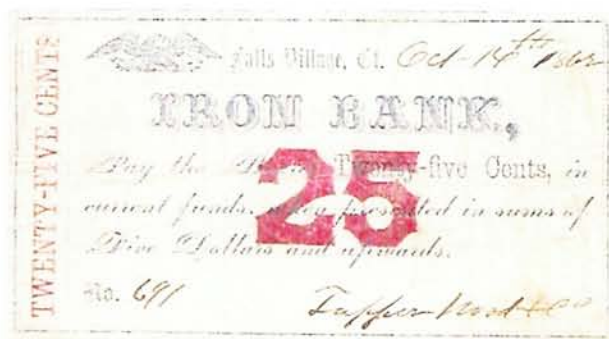 TWENTY-FIVE CENTS
Falls Village, Ct. Oct-14th 1862
IRON BANK,
Pay the Bearer Twenty-five Cents, in
current funds, when presented in sums of
Five Dollars and upwards.
25
No. 691